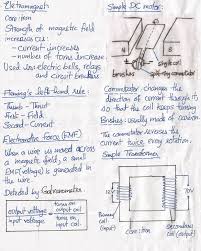 Eletromagnet:
Core: iron
Strength of magnetic field
increases as:
- current increases
- number of turns increase
Used in: electric bells, relays
and circuit breakers
Fleming's left-hand rule:
Thumb - Thrust
First - Field
Second - Current
Electromotive force (EMF)
When a wire moves across
a magnetic field, a small
EMF(voltage) is generated in
the wire.
Detected by Galvanometer
output voltage = turns on output coil
input voltage turns on input coil
Simple DC motor:
N
S
brushes
split-ring commutator
coil
Commutator: changes the
direction of current through coil
so that the coil keeps turning
Brushes: usually made of carbon
The commutator reverses the
current twice every rotation.
Simple Transformer
Primary coil (input)
(iron)
Secondary coil (output)